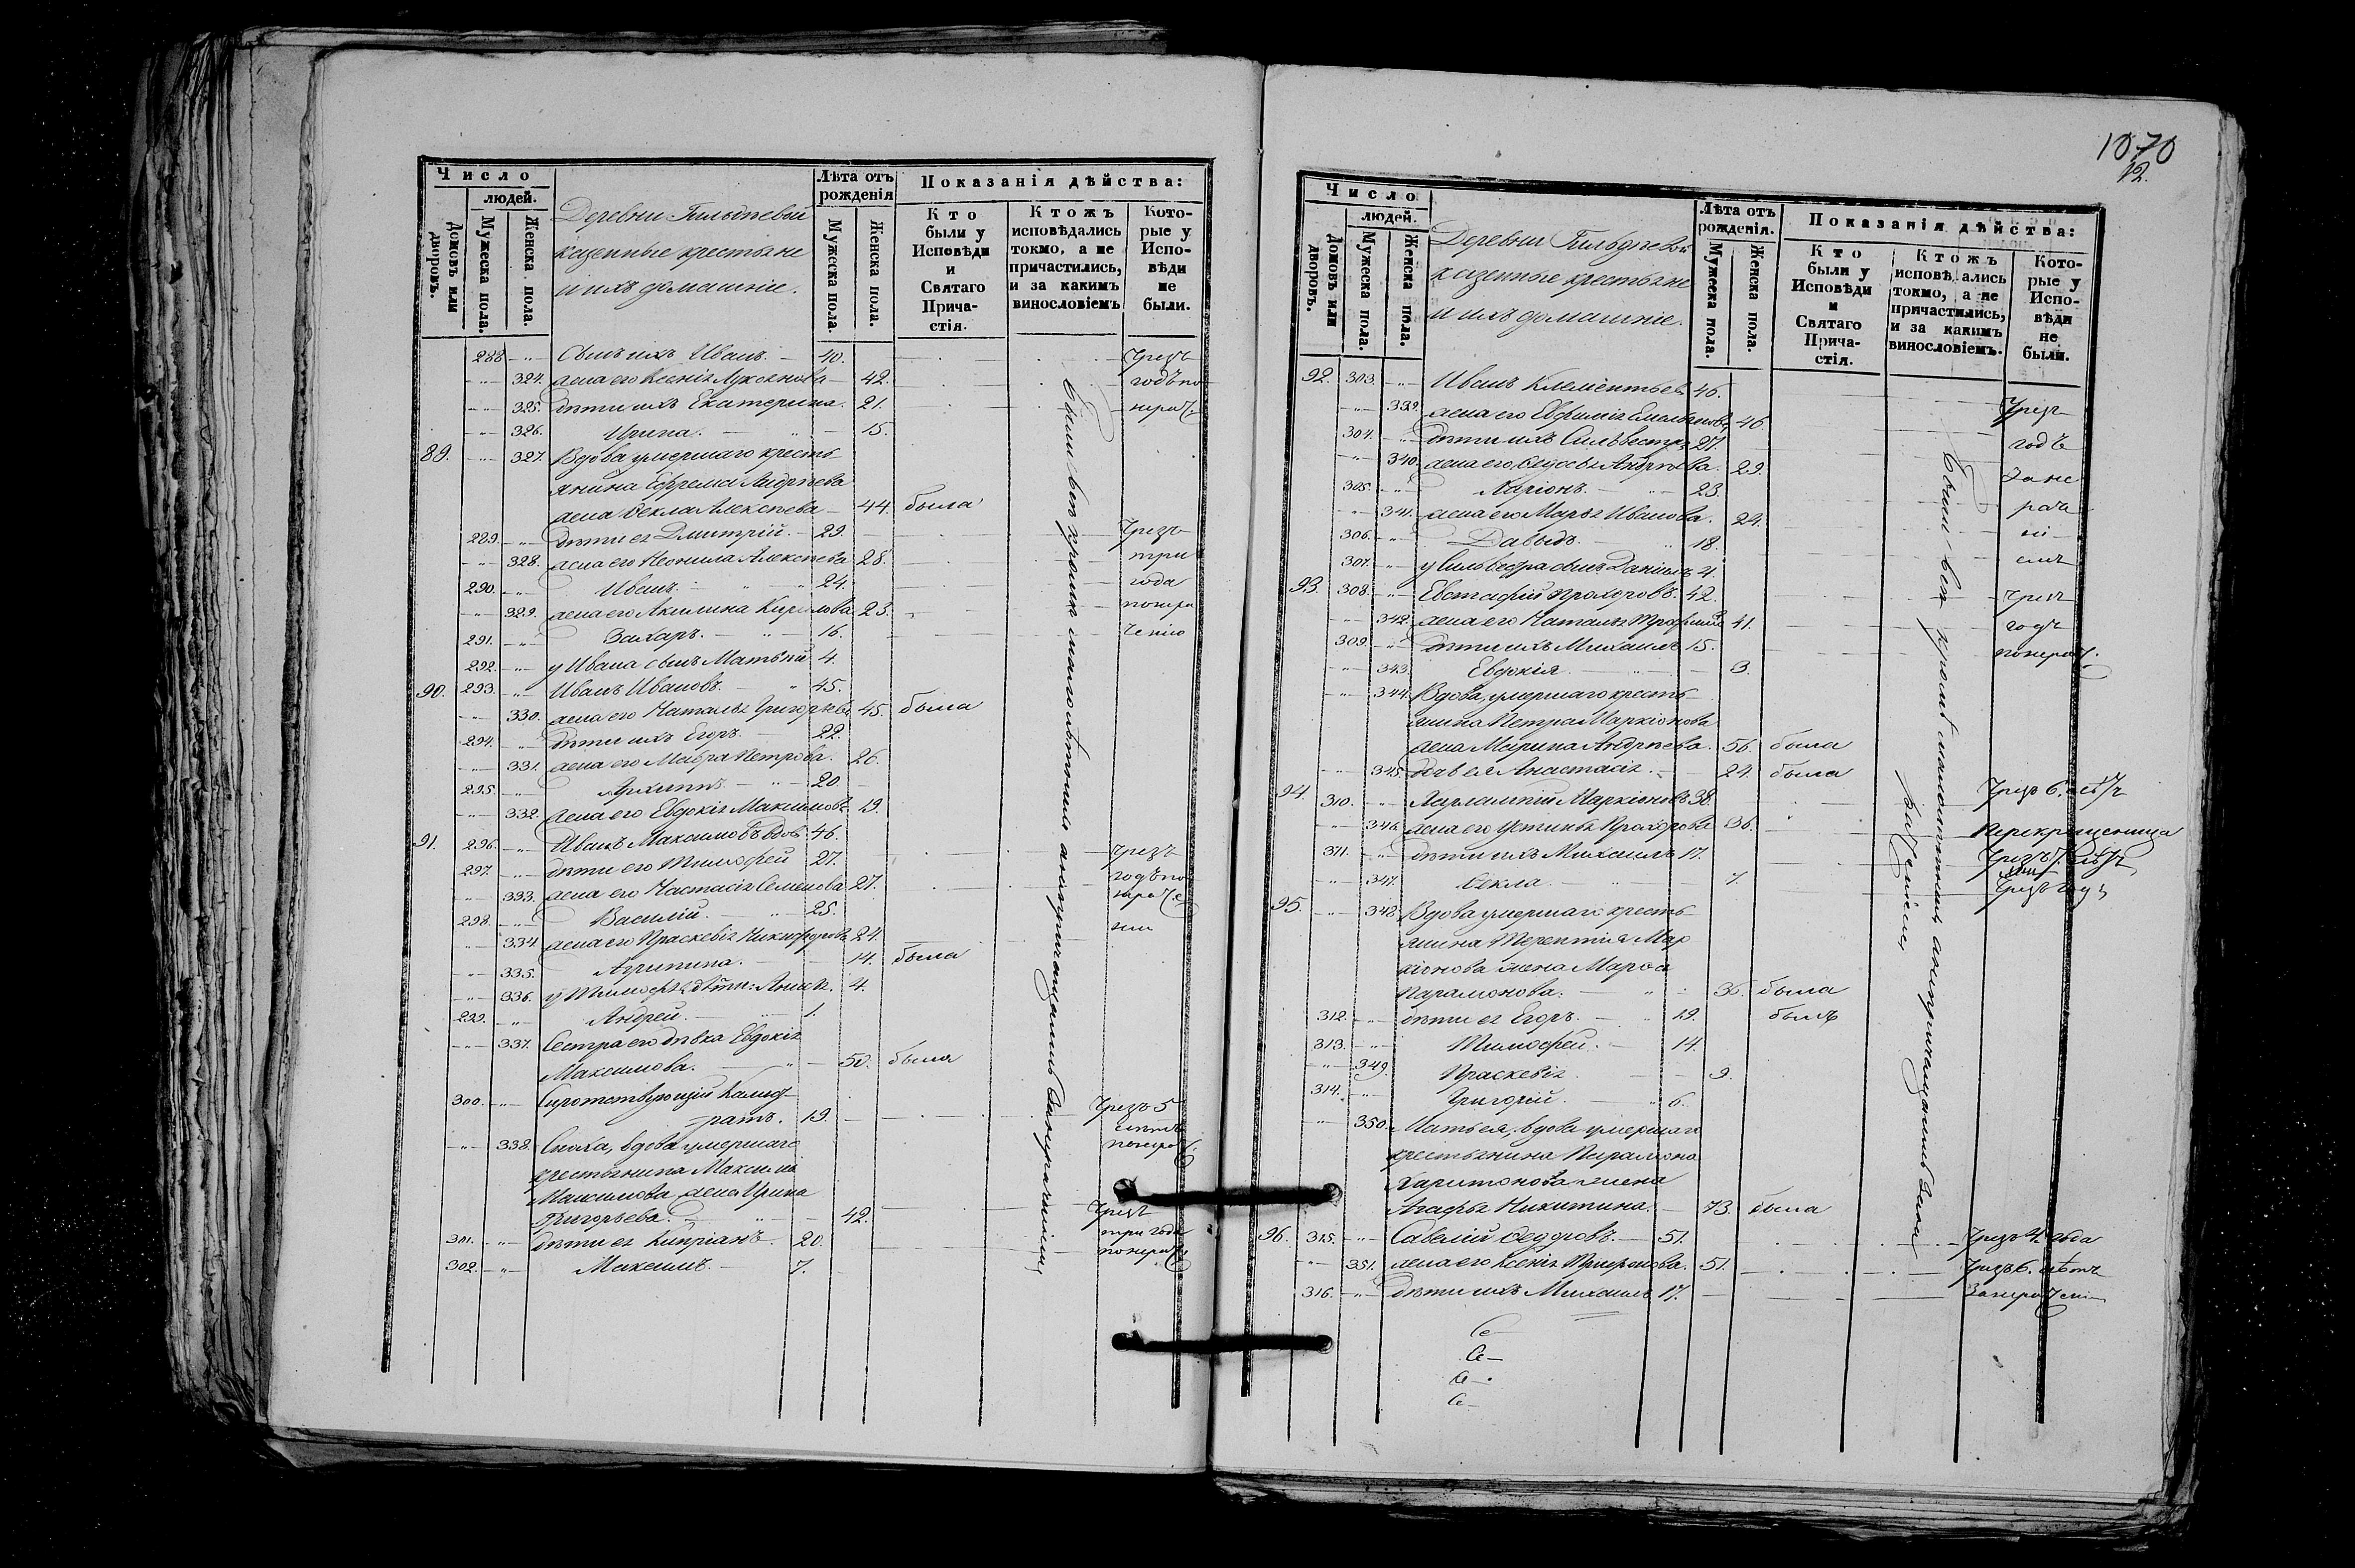 Число
людей.
Домовъ или дворовъ.
Мужеска пола.
Женска пола.
Деревни
казенные крестьяне
и ихъ домашніе.
Лѣта отъ рожденія
Мужеска пола.
Женска пола.
Показанія дѣйства:
Кто были у Исповѣди и Святаго Прича-стія.
Ктожъ исповѣдались токмо, а не причастились, и за какимъ винословіемъ
Кото-рые у Испо-вѣди не были.
288 - " - Сынъ ихъ Иванъ. - 40. Чрезъ
- " - 324. жена его Ксенія Лукоянова - 42. годъ по
- " - 325. дѣти ихъ Екатерина. 21. нерач.
- " - 326. Ирина. - " - 15.
89. - " - 327. Вдова умершаго кресть-
янина Ефрема Андрѣева
жена Ѳекла Алексѣева - 44. была
289. - " - дѣти ея Дмитрій. - 29. Чрезъ
- " - 328. жена его Неонила Алексѣева 28. три
290. - " - Иванъ. - " - 24. года
- " - 329. жена его Акилина Кирилова 23. понера
291. - " - Захаръ. - " - 16. ченію
292. - " - у Ивана сынъ Матвѣй 4.
90. 293. - " - Иванъ Ивановъ. - " 45.
- " - 330. жена его Наталья Григорьева 45. была
294. - " - дѣти ихъ Егоръ. - 22.
- " - 331. жена его Мавра Петрова. 26.
295. - " - Архиппъ. - " - 20.
- " - 332. жена его Евдокія Максимова 19.
91. 296. - " - Иванъ Максимовъ вдов. 46.
297. - " - дѣти его Тимофей 27. чрезъ
- " - 333. жена его Настасія Семенова 27. годъ по
298. - " - Василій. - " - 25. нераче
- " - 334. жена его Праскевія Никифорова 24. нію
- " - 335. Агрипина. - - 14. была
- " - 336. у Тимофея дѣти: Анисья. 4.
299. - " - Андрей. - " - 1.
- " - 337. Сестра его дѣвка Евдокія
Максимова. - " - 50. была
300. - " - Сиротствующій Калист-
ратъ. 19. Чрезъ 5
лѣтъ
- " - 338. Сноха, вдова умершаго понерач.
крестьянина Максима
Максимова жена Ирина
Григорьева. - " - 42. Чрезъ
301. - " - дѣти ея Кипріанъ. 20. три года
302. - " - Максимъ. - 7. понерач.
Были всѣ кромѣ малолѣтнихъ а непричащались за нерачениемъ
1070
12.
Число
людей.
Домовъ или дворовъ.
Мужеска пола.
Женска пола.
Деревни
казенные крестьяне
и ихъ домашніе.
Лѣта отъ рожденія.
Мужеска пола.
Женска пола.
Показанія дѣйства:
Кто были у Исповѣди и Святаго Прича-стія.
Ктожъ исповѣдались токмо, а не причастились, и за какимъ винословіемъ.
Кото-рые у Испо-вѣди не были.
92. 303. - " - Иванъ Клементьев 46.
- " - 339. жена его Евфимія Емельянова 46. Чрезъ
304. - " - дѣти ихъ Сильвестръ 27. годъ
- " - 340. жена его Ѳедосья Андрѣева. 29. За не
305. - " - Ларіонъ. - " - 23. раче
- " - 341. жена его Марья Иванова. 24. ні
306. - " - Давыдъ. - " 18. емъ
307. - " - у Сильвестра сынъ Даніилъ 4.
93. 308. - " - Евстафій Прохоровъ. 42. Чрезъ
- " - 342. жена его Наталья Трофимова 41. годъ
309. - " - дѣти ихъ Михаилъ 15. понерач.
- " - 343. Евдокія - " - 3.
- " - 344. Вдова, умершаго кресть-
янина Петра Маркіонова
жена Марина Андрѣева. 56. была
- " - 345. дочь ея Анастасія. - 24. была
94. 310. - " - Харлампій Маркіоновъ 38. Чрезъ 6. лѣтъ
- " - 346. жена его Устинья Прохорова 36. Перекрещенница
311. - " - дѣти ихъ Михаилъ 17. Чрезъ 7. лѣтъ
- " - 347. Ѳекла. - " - 7. Чрезъ годъ
95. - " - 348. Вдова умершаго кресть-
янина Терентія Мар
кіонова жена Марѳа
Парамонова. - " - 36. была
312. - " - дѣти ея Егоръ. - " 19. былъ
313. - " - Тимофей. - 14.
- " - 349. Праскевія. - - 9.
314. - " - Григорій. - " 6.
- " - 350. Мать ея, вдова умершаго
крестьянина Парамона
Харитонова жена
Агафья Никитина. - 73. была
96. 315. - " - Савелій Ѳедоровъ. - 51. Чрезъ 4. года
- " - 351. жена его Ксенія 51. Чрезъ 6. лѣтъ
316. - " - дѣти ихъ Михаилъ 17. За нерачені
Были всѣ кромѣ малолѣтнихъ а непричащались за не
рачениемъ